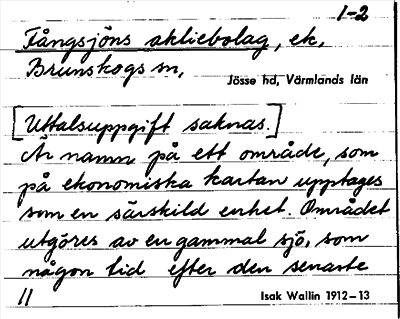 1-2
Fångsjöns aktiebolag, ek,
Brunskogs sn,
Jösse hd, Värmlands län
[Uttalsuppgift saknas.]
Är namn på ett område, som
på ekonomiska kartan upptages
som en särskild enhet. Området
utgöres av en gammal sjö, som
någon tid efter den senaste
11
Isak Wallin 1912-13